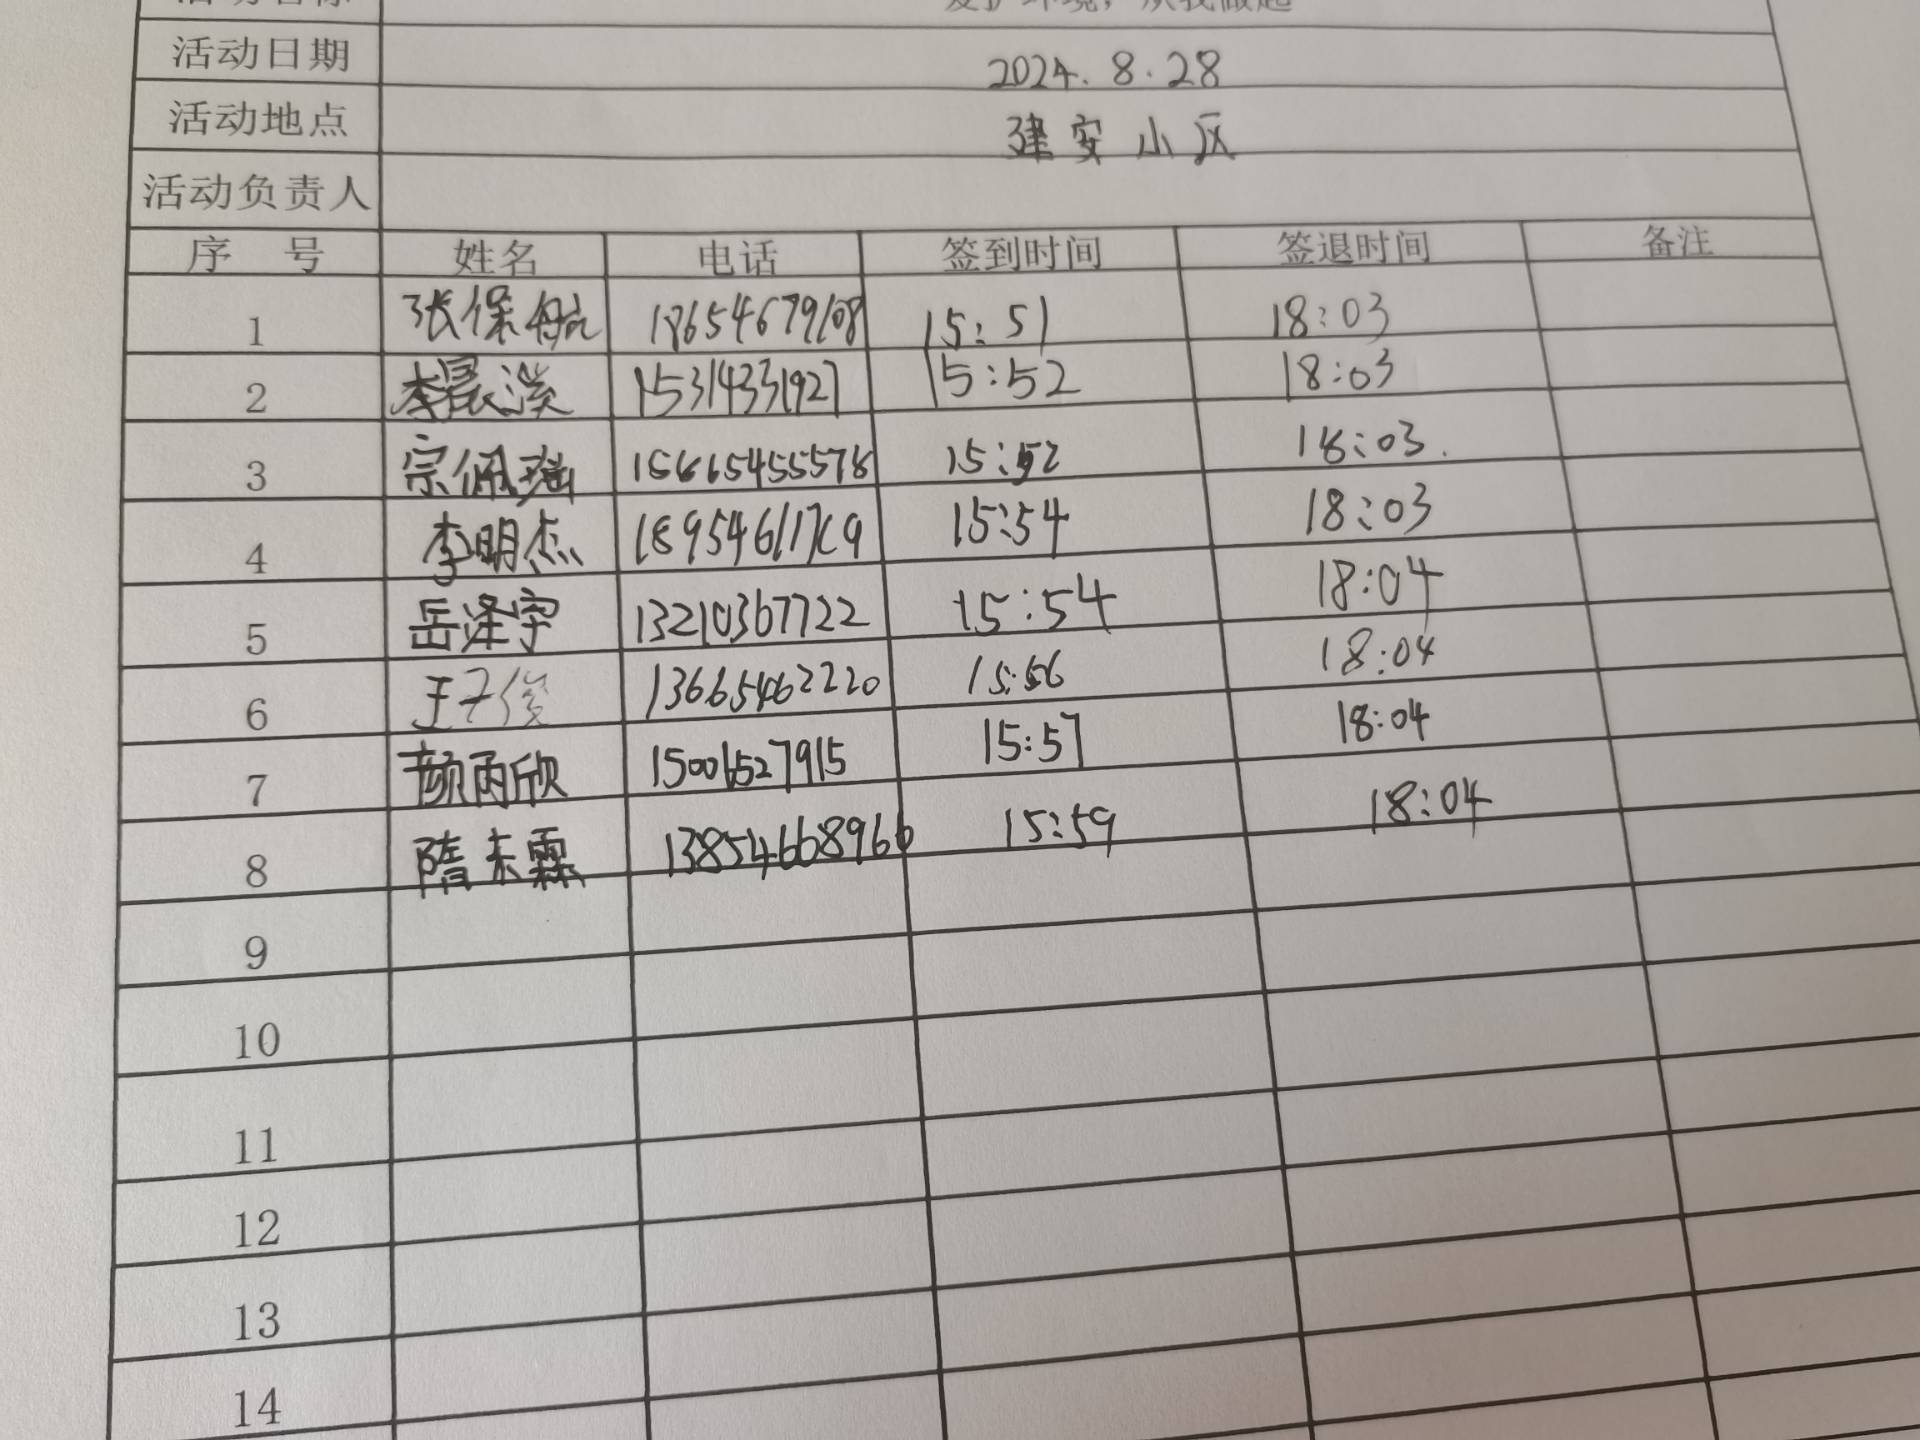 活动名称 爱护环境，从我做起
活动日期 2024.8.28
活动地点 建安小区
活动负责人
序 号 姓名 电话 签到时间 签退时间 备注
1 张保航 18654679108 15:51 18:03
2 李晨溪 15314331927 15:52 18:03
3 宗佩瑶 15:52 18:03.
4 李明杰 15:54 18:03
5 岳泽宇 13210367722 15:54 18:04
6 王子俊 13665462220 15:56 18:04
7 颜雨欣 15006527915 15:57 18:04
8 隋未霖 13854668966 15:59 18:04
9
10
11
12
13
14